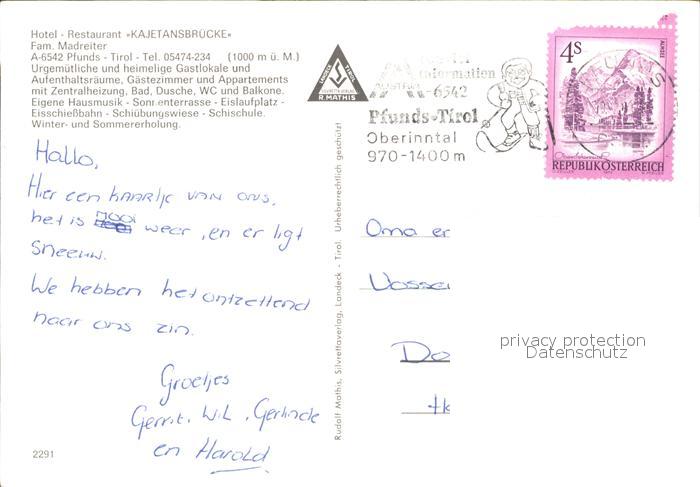 Hotel - Restaurant »KAJETANSBRÜCKE«
Fam. Madreiter
A-6542 Pfunds - Tirol - Tel. 05474-234 (1000 m ü. M.)
Urgemütliche und heimelige Gastlokale und
Aufenthaltsräume, Gästezimmer und Appartements
mit Zentralheizung, Bad, Dusche, WC und Balkone.
Eigene Hausmusik - Sonnenterrasse - Eislaufplatz -
Eisschießbahn - Schiübungswiese - Schischule.
Winter- und Sommererholung.
Hallo,
Hier een kaartje van ons,
het is mooi weer, en er ligt
sneeuw.
We hebben het ontzettend
naar ons zin.
Groetjes
Gerrit, Wil, Gerlinde
en Harold
2291
R. MATHIS
Rudolf Mathis, Silvrettaverlag, Landeck - Tirol. Urheberrechtlich geschützt!
Information
A-6542
Pfunds-Tirol
Oberinntal
970-1400m
4S
ALMSEE
REPUBLIK ÖSTERREICH
Oma er
Vossei
Do
tk
privacy protection
Datenschutz